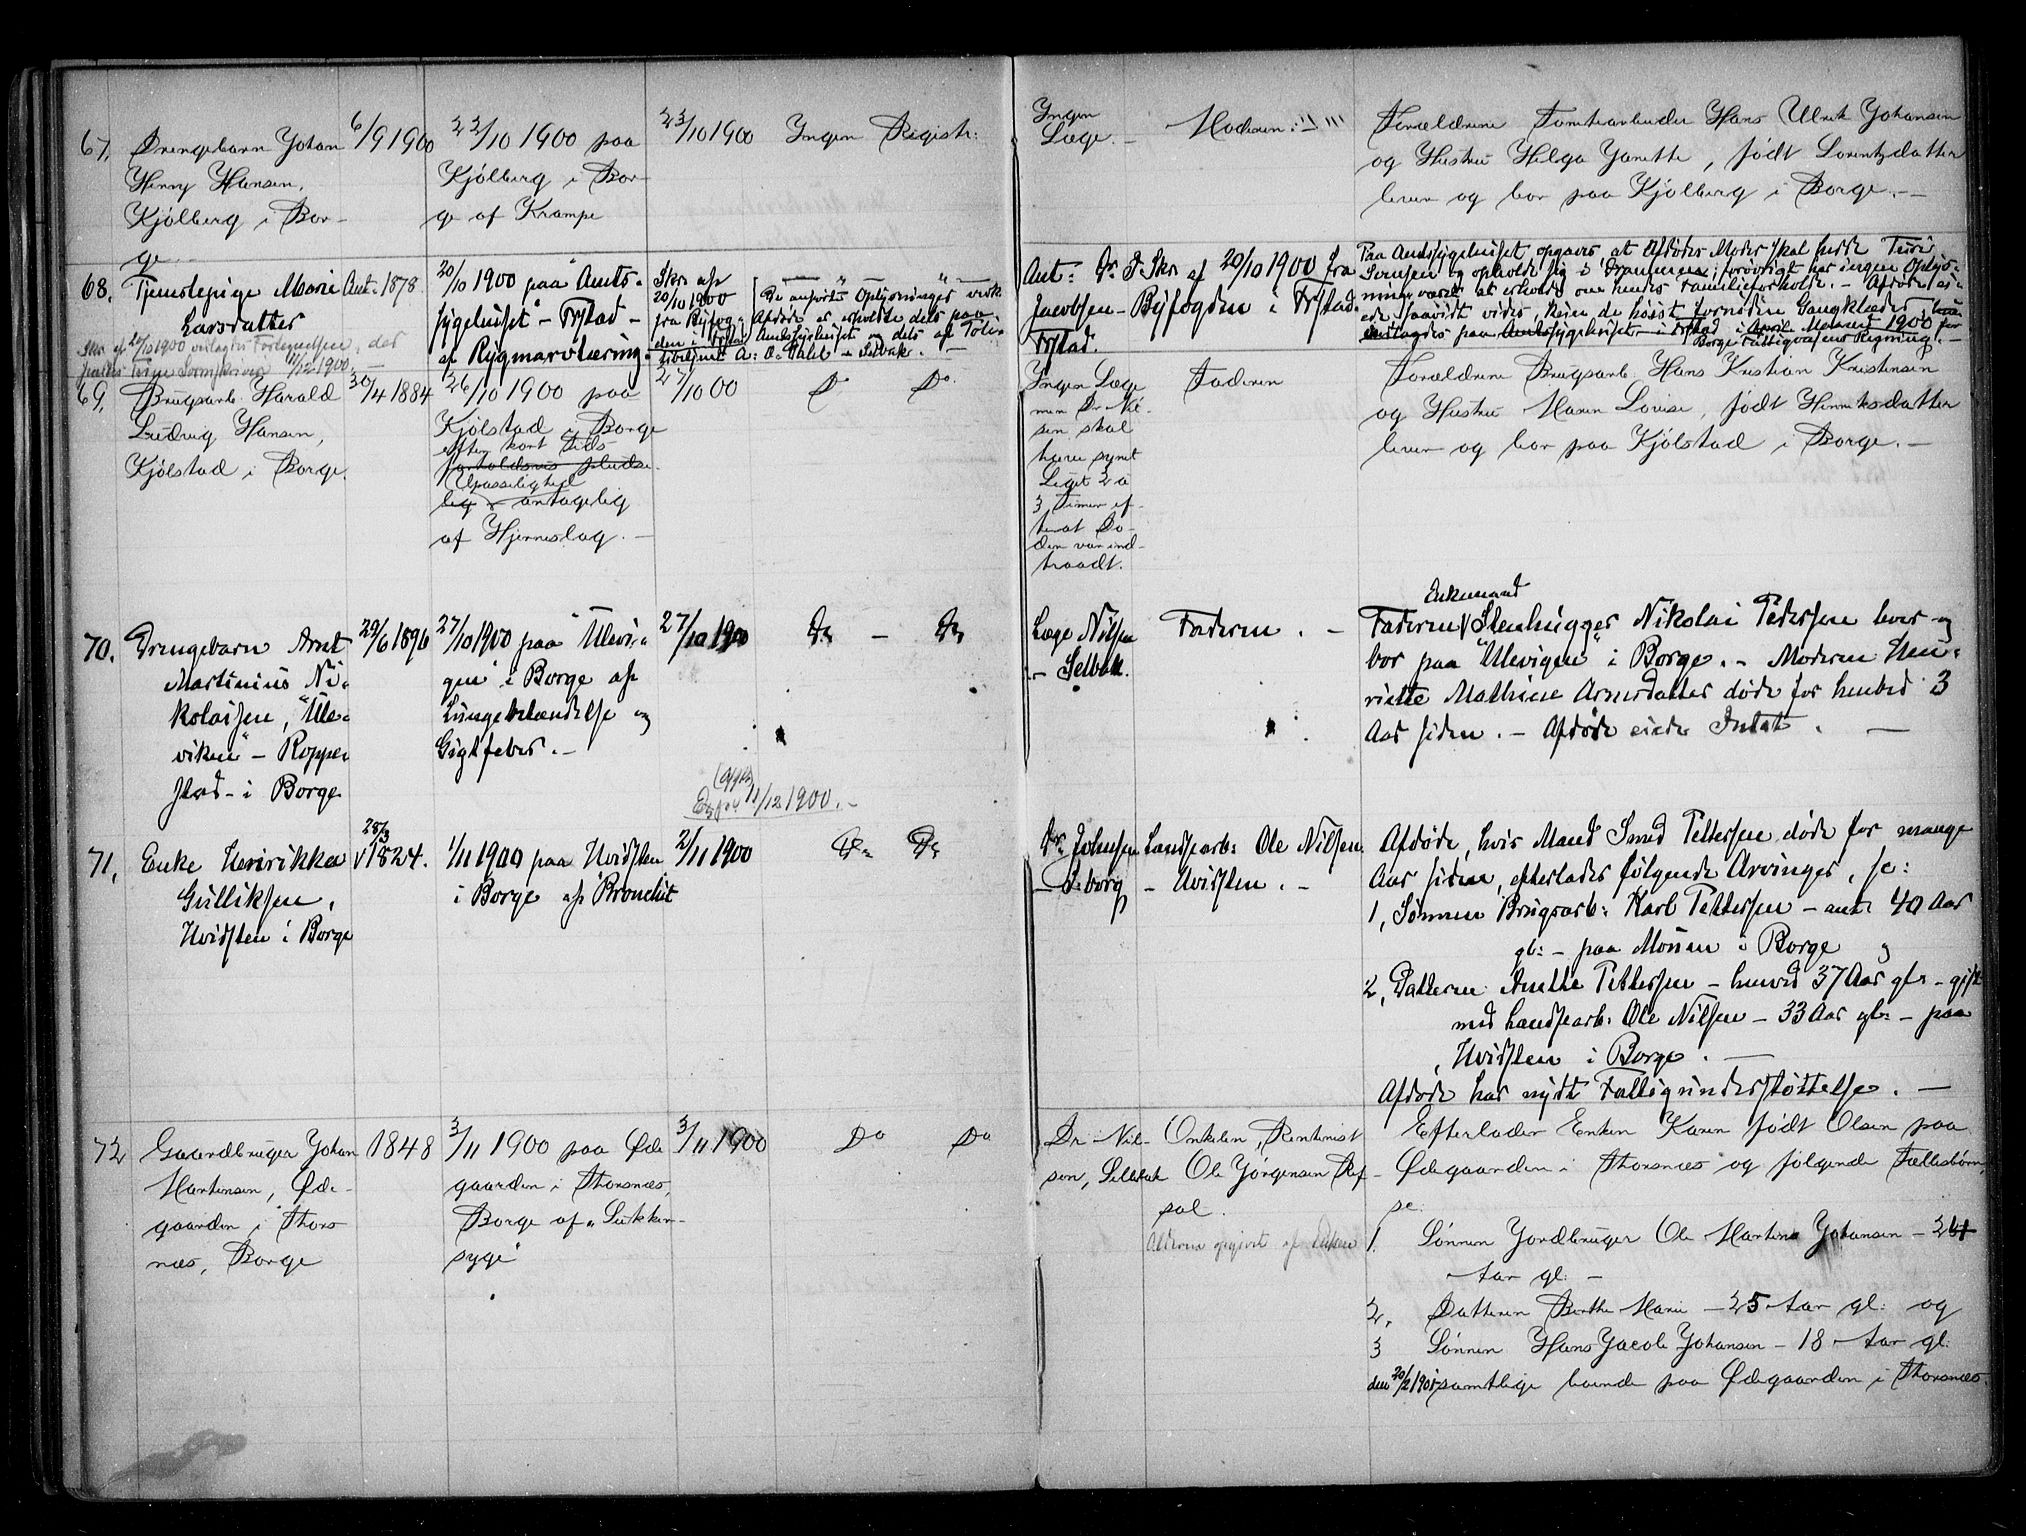 67. Drengebarn Johan
Henry Hansen,
Kjølberg i Bor-
ge.
6/9 1900
22/10 1900 paa
Kjølberg i Bor-
ge af Krampe
23/10 1900
Ingen Registr:
Ingen
Læge. -
Moderen
Forældrene Tomtearbeider Hans Ulrik Johansen
og Hustru Helga Janette, født Lorentzdatter
lever og bor paa Kjølberg i Borge. -
68. Tjenestepige Marie
Larsdatter
Ant: 1878.
20/10 1900 paa "Amts-
sygehuset" - Frstad -
af Rygmarvstæring.
Skr. af
20/10 1900
fra Byfog-
den i Frstad
De anførte Oplysninger vedk.
Afdøde er erholdte dels paa
Amtssygehuset dels af
A: O: - Selbak. -
Ant: Dr. J.
Jacobsen -
Frstad.
Skr. af 20/10 1900 fra
Byfogden i Frstad.
Paa Amtssygehuset opgaves, at Afdødes Moder skal hedde
Iversen og opholde sig i Drammen; forøvrigt har ingen Oplys-
ning været at erholde om hendes Familieforholde. - Afdøde ei-
ede saavidt vides, kun de høist fornødne Gangklæder,
paa Amtssygehuset i Frstad i April Maaned 1900 for
Borge Fattigvæsens Regning. -
69. Brugsarb. Harald
Ludvig Hansen,
Kjølstad i Borge.
30/4 1884
26/10 1900 paa
Kjølstad i Borge
efter kort Tids
forholdsvis pludse-
Upasselighed
lig antagelig
af Hjerneslag. -
27/10 00
Do Do.
Ingen Læge
men Dr. Nil-
sen skal
have synet
Liget 2 à
3 Timer ef-
terat Dø-
den var ind-
traadt.
Faderen
Forældrene Brugsarb. Hans Kristian Kristensen
og Hustru Maren Lovise, født Henriksdatter
lever og bor paa Kjølstad i Borge. -
70. Drengebarn Arnt
Martinius Ni-
kolaisen, "Ule-
viken" - Roppe-
stad - i Borge
29/6 1896
27/10 1900 paa "Ulevi-
gen" i Borge af
Lungebetændelse og
Gigtfeber. -
27/10 1900
Do - Do
11/12 1900. -
Læge Nilsen
- Selbak.
Faderen. -
Enkemand
Faderen Stenhugger Nikolai Pedersen lever og
bor paa "Ulevigen" i Borge. - Moderen Hen-
riette Mathine Arnesdatter døde for henved 3
Aar siden. - Afdøde eiede Intet. -
71, Enke Henrikka
Gulliksen,
Hvidsten i Borge
28/3
1824.
1/11 1900 paa Hvidsten
i Borge af Bronchit
2/11 1900
Do Do
Dr. Johnsen
- Seborg
Landsarb: Ole Nilsen
- Hvidsten. -
Afdøde, hvis Mand Smed Pettersen døde for mange
Aar siden, efterlader følgende Arvinger, se:
1, Sønnen Brugsarb: Karl Pettersen - ant 40 Aar
gl: - paa Moum i Borge og
2, Datteren Anethe Pettersen - henved 37 Aar gl - gift
med Landsarb: Ole Nilsen - 33 Aar gl: - paa
Hvidsten i Borge. -
Afdøde har nydt Fattigunderstøttelse. -
72 Gaardbruger Johan
Martinsen, Øde-
gaarden i Thors-
næs, Borge
1848
3/11 1900 paa Øde
gaarden i Thorsnæs,
Borge af "Sukker-
syge"
3/11 1900
Do Do
Dr. Nil-
sen, Selbak
Onkelen, Rentenist
Ole Jørgensen Ref-
sal.
Alderen opgivet af Enken
Efterlader Enken Karen født Olsen paa
Ødegaarden i Thorsnæs og følgende Fællesbørn,
se:
1. Sønnen Jordbruger Ole Martin Johansen -
Aar gl. -
2. Datteren Berthe Marie - 25 Aar gl: og
3 Sønnen Hans Jacob Johansen - 18 Aar gl.
samtlige boende paa Ødegaarden i Thorsnæs.